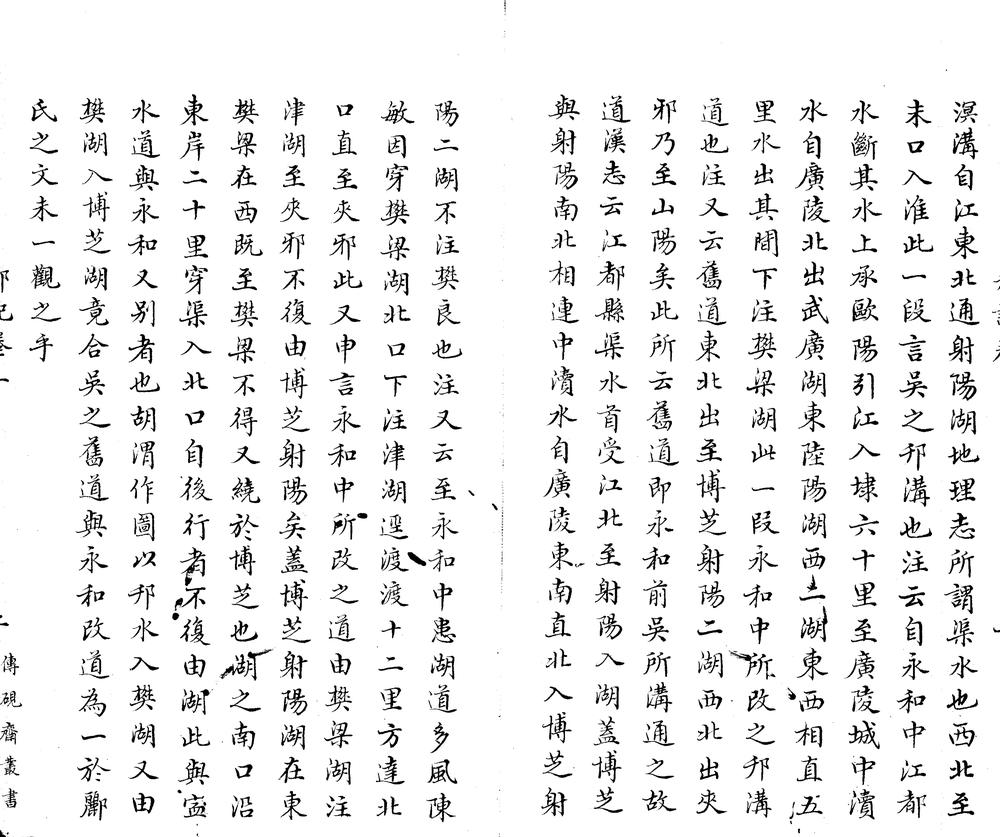 溟溝自江東北通射陽湖地理志所謂渠水也西北至
末口入淮此一段言吳之邗溝也注云自永和中江都
水斷其水上承歐陽引江入埭六十里至廣陵城中瀆
水自廣陵北出武廣湖東陸陽湖西二湖東西相直五
里水出其間下注樊梁湖此一段永和中所改之邗溝
道也注又云舊道東北出至博芝射陽二湖西北出夾
邪乃至山陽矣此所云舊道即永和前吳所溝通之故
道漢志云江都縣渠水首受江北至射陽入湖蓋博芝
與射陽南北相連中瀆水自廣陵東南直北入博芝射
陽二湖不注樊良也注又云至永和中患湖道多風陳
敏因穿樊梁湖北口下注津湖逕渡渡十二里方達北
口直至夾邪此又申言永和中所改之道由樊梁湖注
津湖至夾邪不復由博芝射陽矣蓋博芝射陽湖在東
樊梁在西既至樊梁不得又繞於博芝也湖之南口沿
東岸二十里穿渠入北口自後行者不復由湖此與寍
水道與永和又別者也胡渭作圖以邗水入樊湖又由
樊湖入博芝湖竟合吳之舊道與永和改道為一於酈
氏之文未一觀之乎
傳硯齋叢書